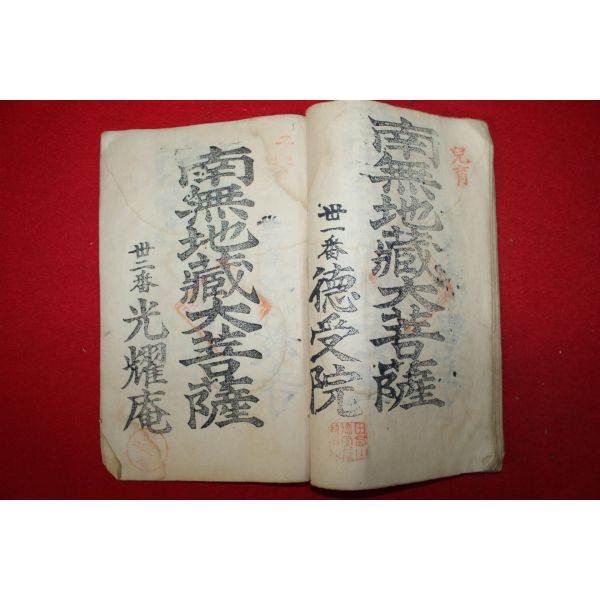 兒育
南無地藏大菩薩
丗一番 德受院
南無地藏大菩薩
丗二番 光耀庵